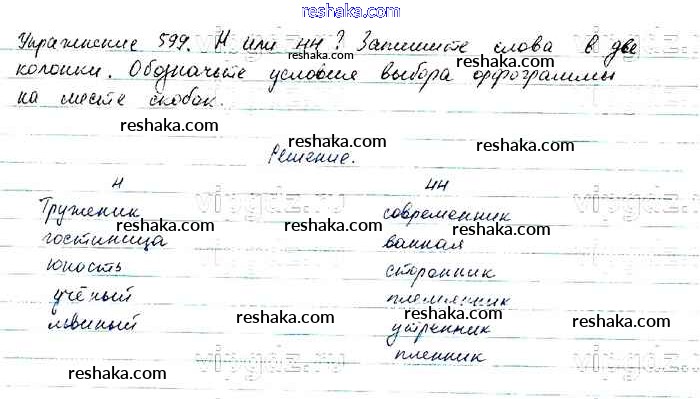 reshaka.com
Упражнение 599. Н или НН? Запишите слова в две
колонки. Обозначьте условия выбора орфограммы
на месте скобок.
reshaka.com
reshaka.com
reshaka.com
reshaka.com
Решение.
Н НН
vipgdz.ru
Труженик современник
гостиница ванная
юность сторонник
учёный племянник
львиный утренник
пленник
reshaka.com
reshaka.com
reshaka.com
reshaka.com
reshaka.com
reshaka.com
reshaka.com
vipgdz.ru
vipgdz.ru
reshaka.com
reshaka.com